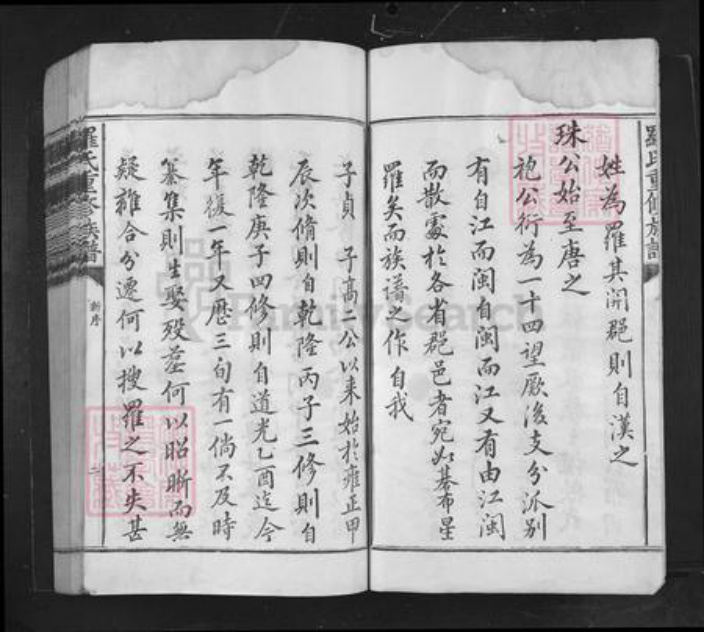 羅氏重修族譜
姓為羅其開郡則自漢之
珠公始至唐之
袍公衍為一十四望厥後支分派別
有自江而閩自閩而江又有由江閩
而散處於各省郡邑者宛如碁布星
羅矣而族譜之作自我
子貞 子高二公以来始於雍正甲
辰次脩則自乾隆丙子三修則自
乾隆庚子四修則自道光乙酉迄今
年復一年又歷三旬有一倘不及時
纂集則生娶殁塟何以昭晰而無
疑離合分遷何以搜羅之不失甚
羅氏重修族譜
新序
二
FamilySearch